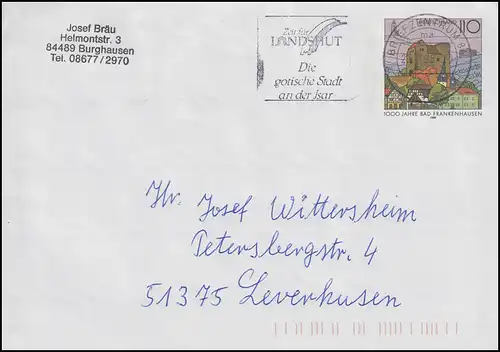 Josef Bräu
Helmontstr. 3
84489 Burghausen
Tel. 08677/2970
Zeit für
LANDSHUT
Die
gotische Stadt
an der Isar
BRIEFZENTRUM
110
1000 JAHRE BAD FRANKENHAUSEN
Hr. Josef Wittersheim
Petersbergstr. 4
51375 Leverkusen